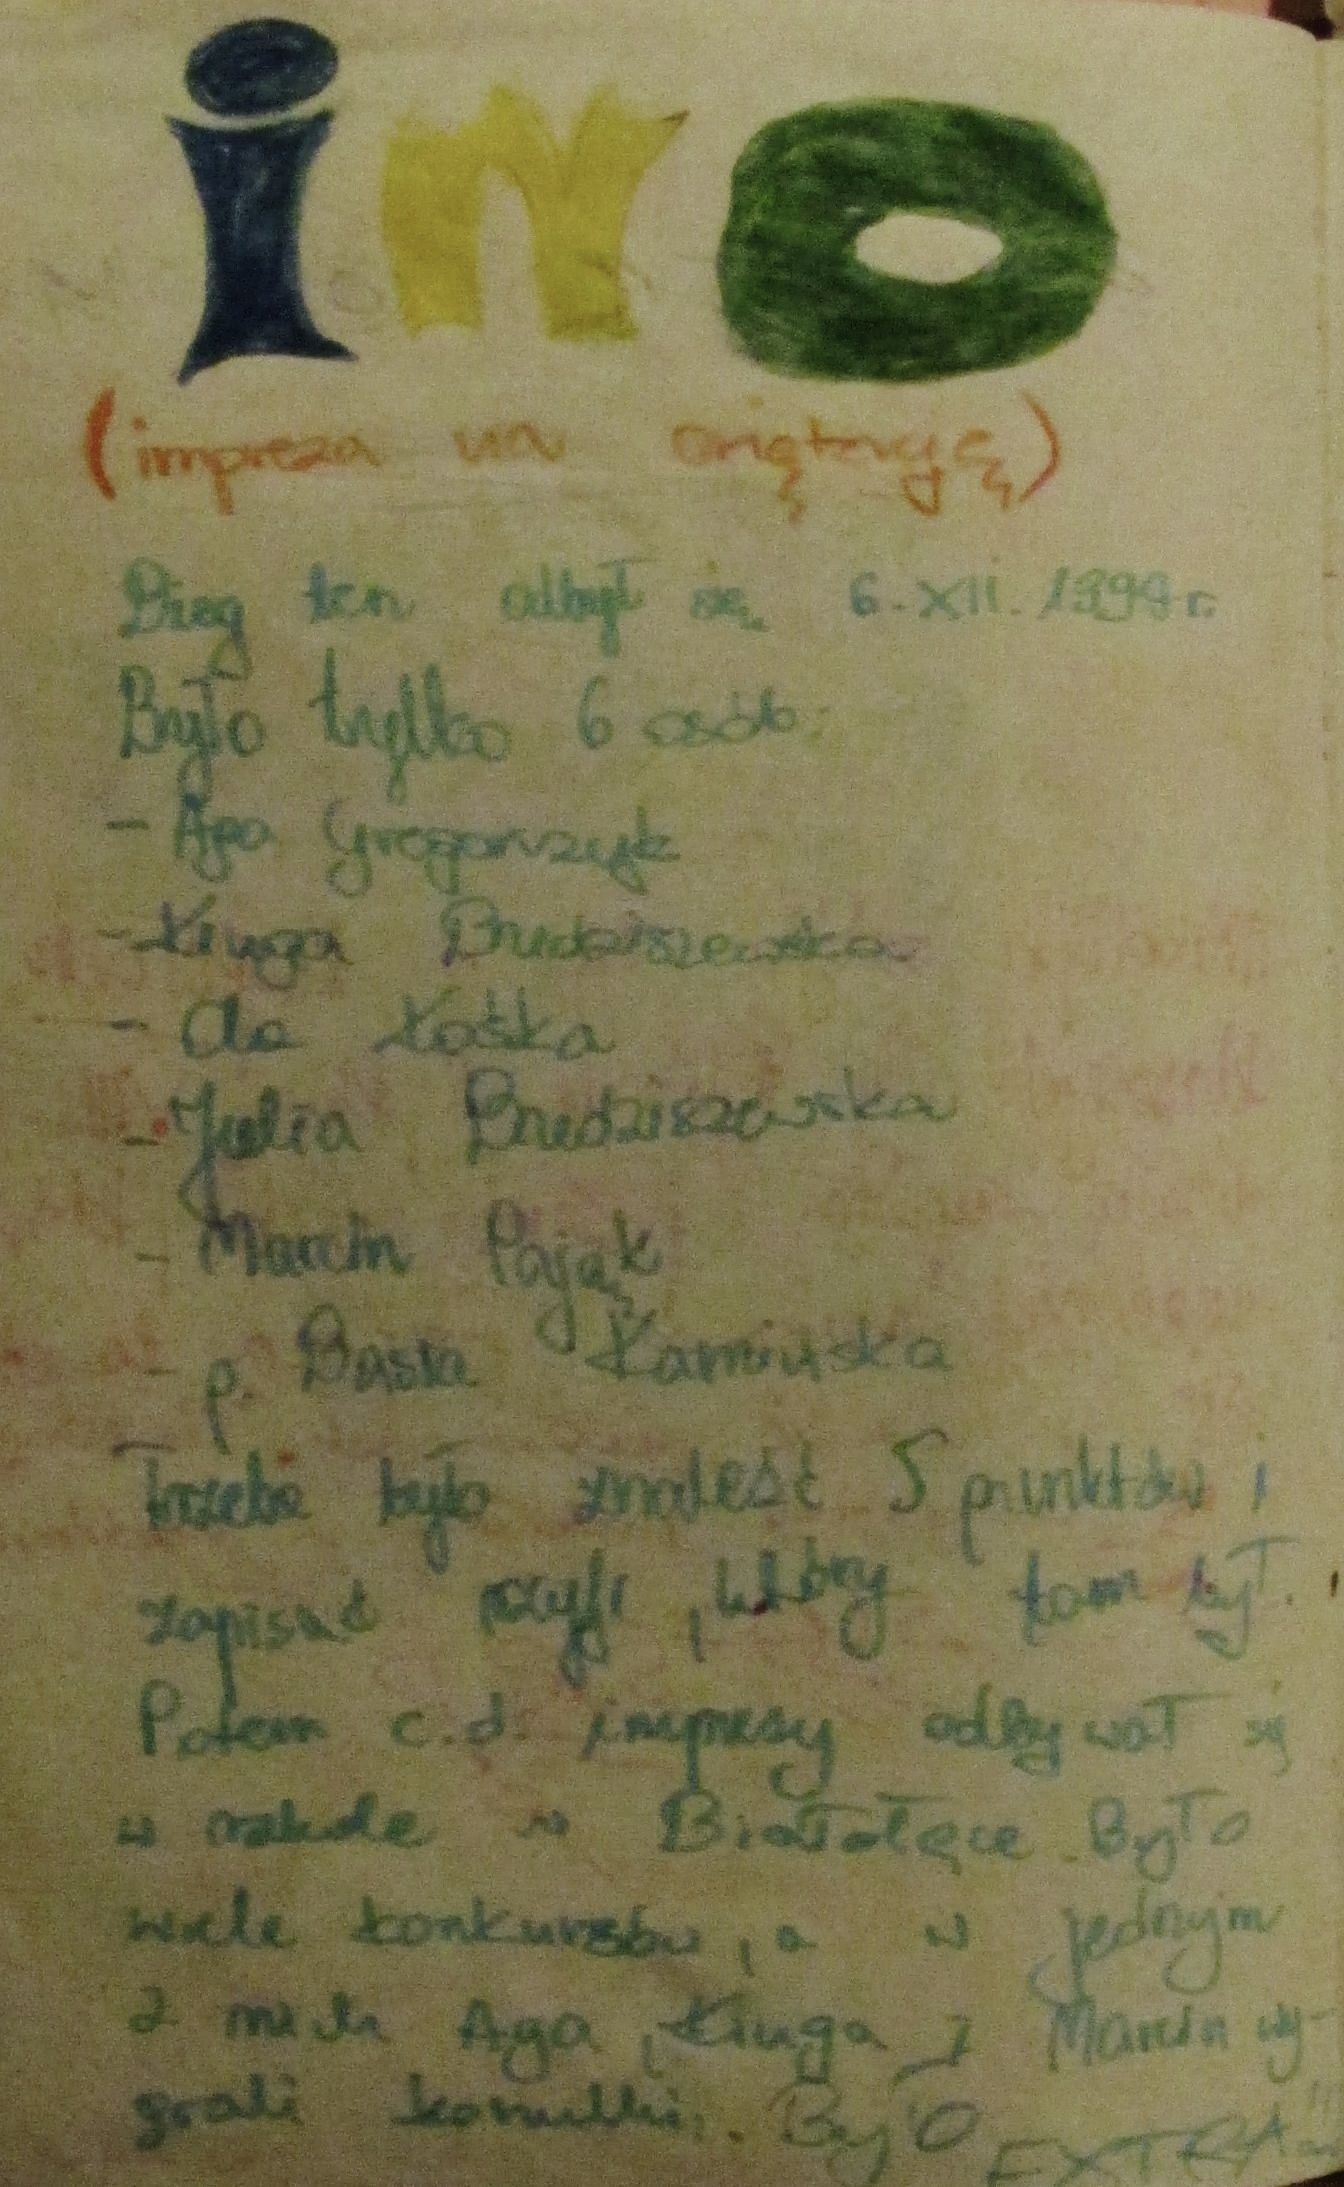 ino
(impreza na orięntację)
Bieg ten odbył się 6.XII.1998r.
Było tylko 6 osób:
- Aga Gregorczyk
- Kinga Brudziszewska
- Ola Łośka
- Julia Brudziszewska
- Marcin Pająk
- p. Basia Kamińska
Trzeba było znaleść 5 punktów i
zapisać szyfr, który tam był.
Potem c.d. imprezy odbywał się
w szkole w Białołęce. Było
wiele konkursów, a w jednym
z nich Aga, Kinga i Marcin wy-
grali koszulki. Było EXTRA!!!